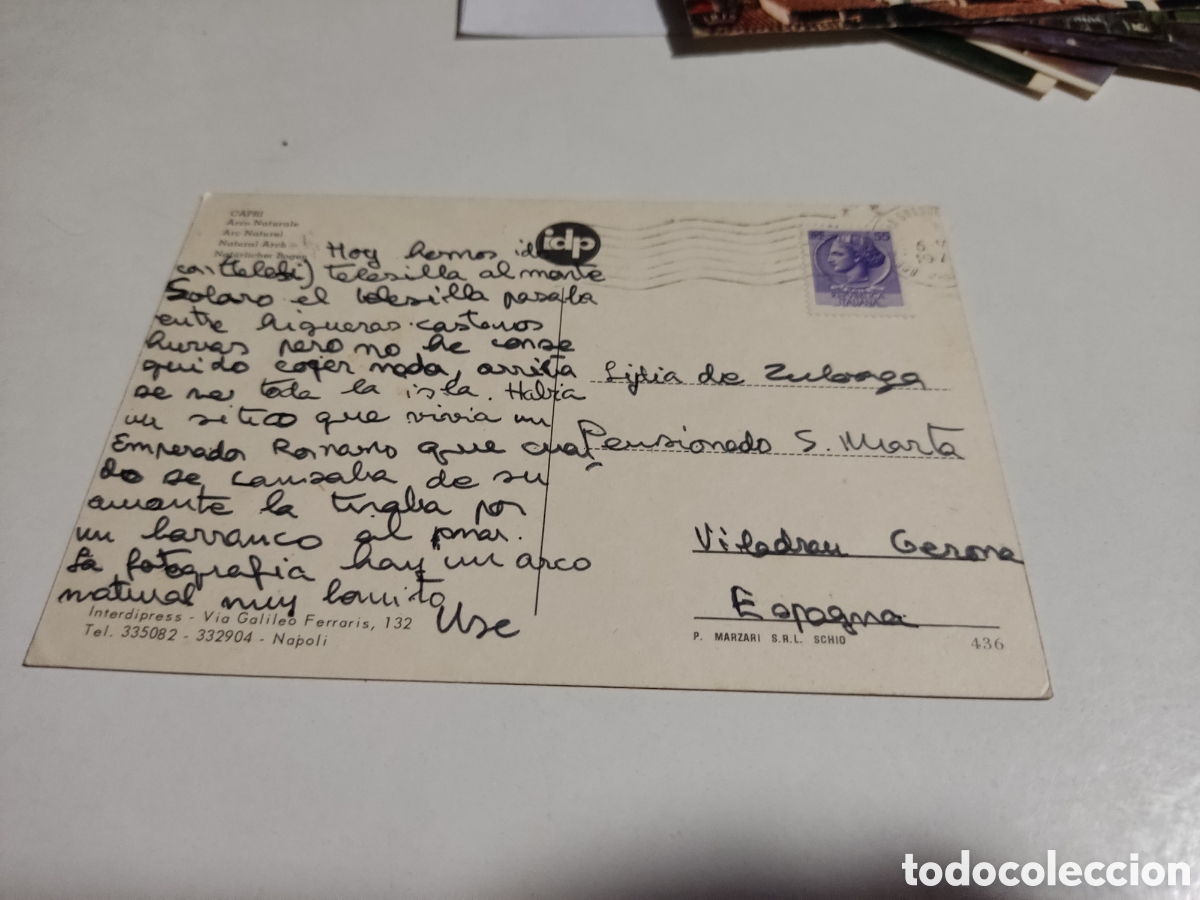 CAPRI
Arco Naturale
Arc Naturel
Natural Arch
Natürlicher Bogen
idp
Hoy hemos id
telesilla al monte
Solaro el telesilla pasaba
entre higueras castanos
huvas pero no he conse
guido coger nada, arriba
se ve toda la isla. Habia
un sitio que vivia un
Emperador Romano que cuan
do se cansaba de su
amante la tiraba por
un barranco al mar.
La fotografia hay un arco
natural muy bonito
Interdipress - Via Galileo Ferraris, 132
Tel. 335082 - 332904 - Napoli
55
REPUBBLICA
ITALIANA
de Zuloaga
Pensionado S. Marta
Viladrau Gerona
Espagna
P. MARZARI S.R.L. SCHIO
436
todocoleccion